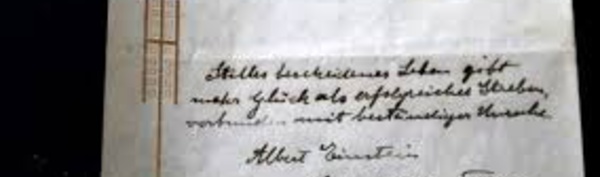 Stilles bescheidenes Leben gibt
mehr Glück als erfolgreiches Streben,
verbunden mit beständiger Unruhe.
Albert Einstein